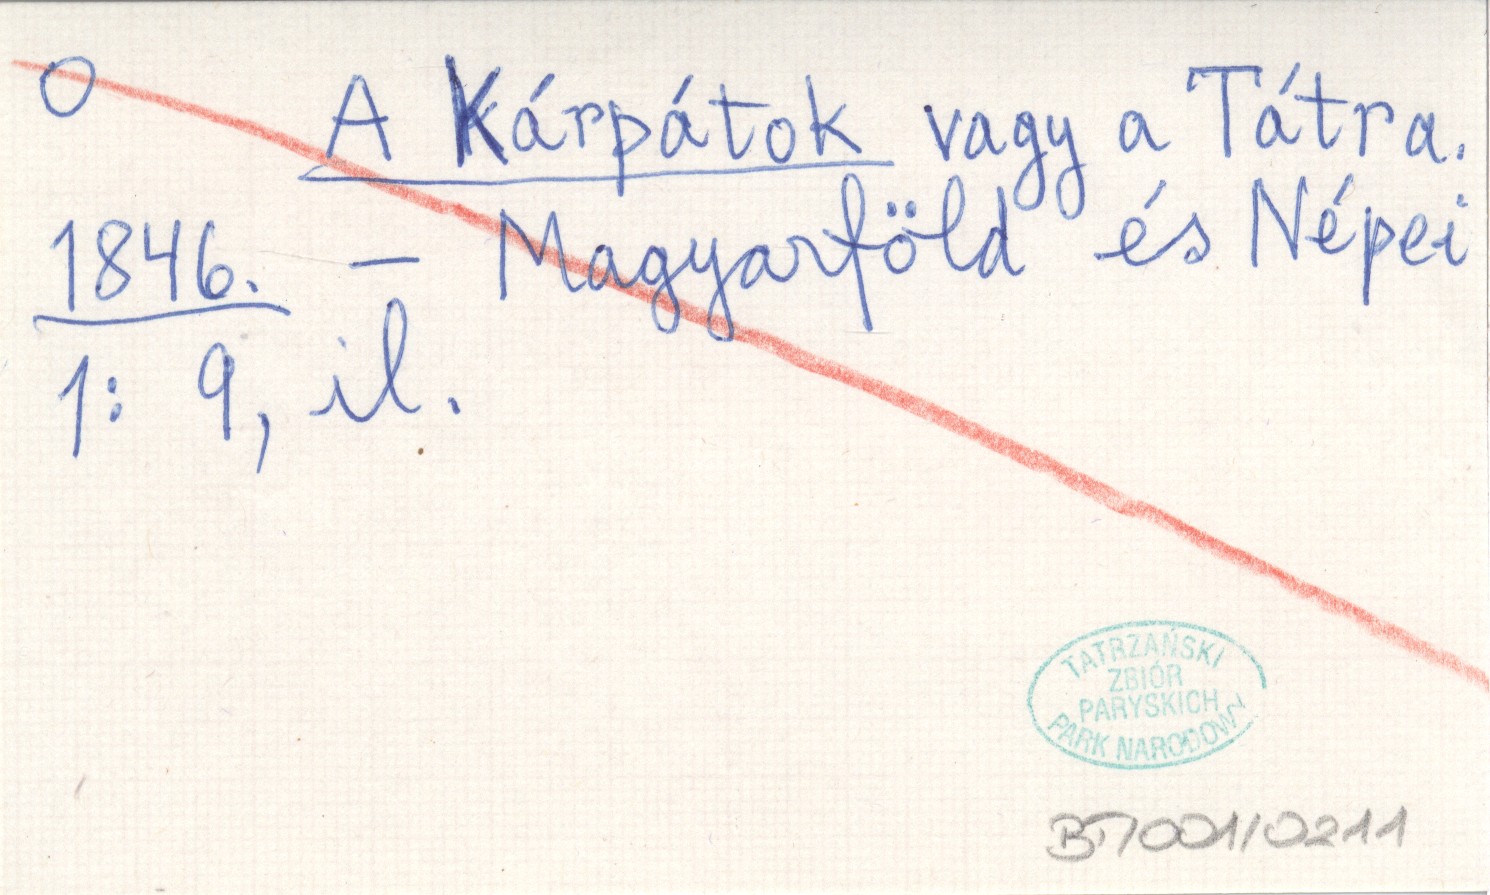 O A Kárpátok vagy a Tátra.
1846. – Magyarföld és Népei
1: 9, il.
TATRZAŃSKI
ZBIÓR
PARYSKICH
PARK NARODOWY
BT/001/0211